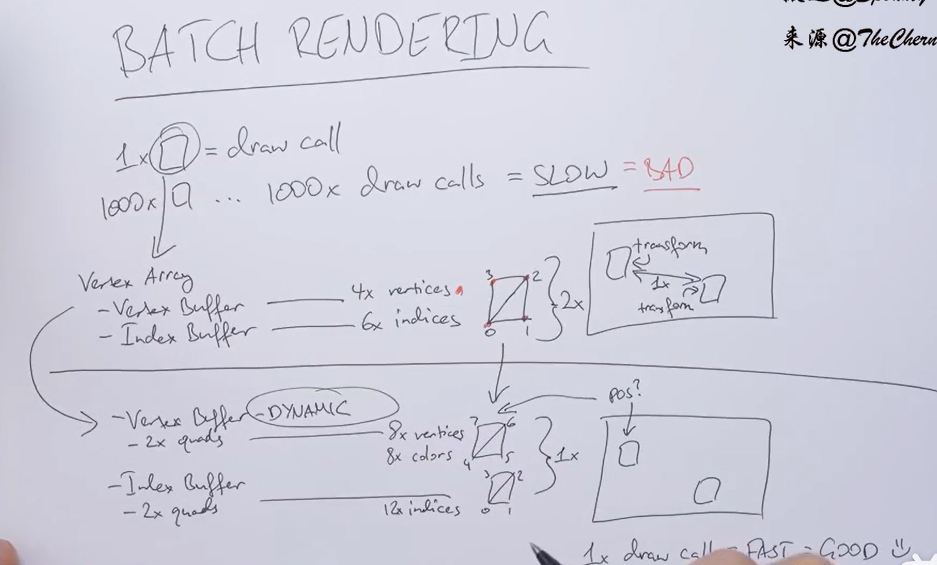 来源@TheChern
BATCH RENDERING
1x = draw call
1000x ... 1000x draw calls = SLOW = BAD
Vertex Array
- Vertex Buffer 4x vertices
- Index Buffer 6x indices
3 2
0 1
2x
transform
1x
transform
- Vertex Buffer - DYNAMIC
- 2x quads 8x vertices
8x colors
7 6
4 5
3 2
0 1
1x
pos?
- Index Buffer
- 2x quads 12x indices
1x draw call = FAST = GOOD